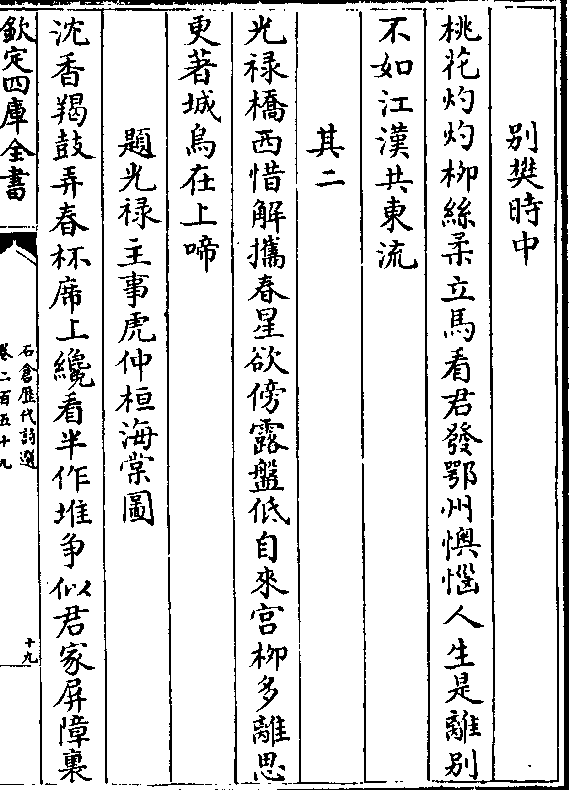 別樊時中
桃花灼灼柳絲柔立馬看君發鄂州懊惱人生是離别
不如江漢共東流
其二
光禄橋西惜解攜春星欲傍露盤低自來宫柳多離思
更著城烏在上啼
題光禄主事虎仲桓海棠圖
沈香羯鼓弄春杯席上纔看半作堆争似君家屏障裏
欽定四庫全書
石倉歷代詩選
卷二百五十九
十九